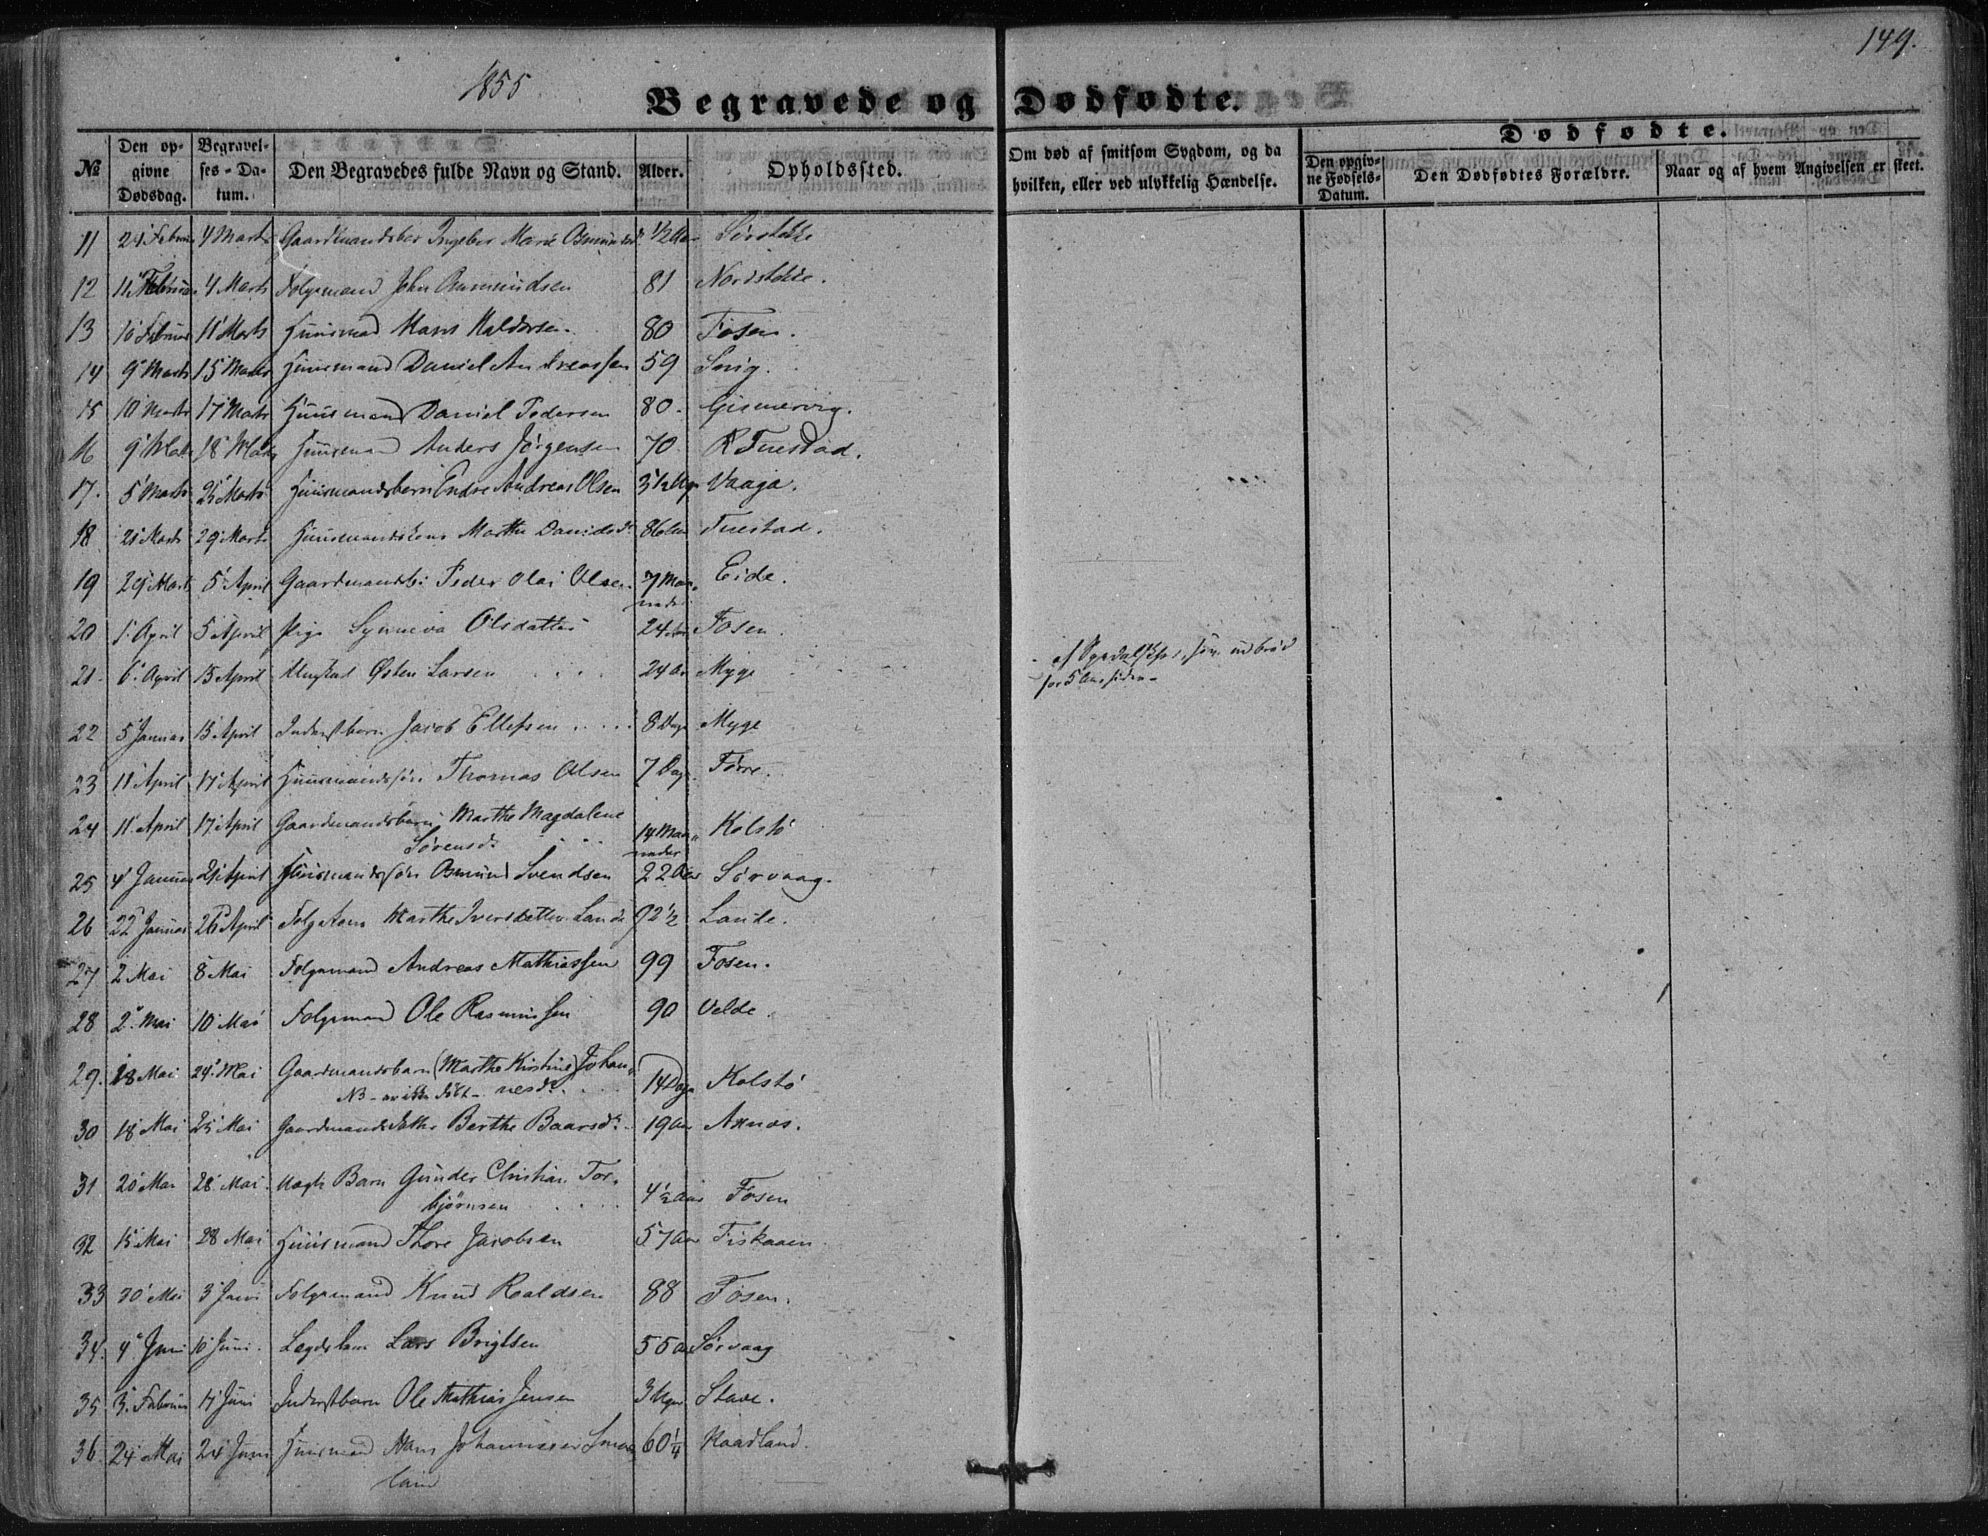 149.
1855
Begravede og Dødfødte.
№
Den opgivne Dødsdag.
Begravelses-Datum.
Den Begravedes fulde Navn og Stand.
Alder.
Opholdssted.
Om død af smitsom Sygdom, og da hvilken, eller ved ulykkelig Hændelse.
Dødfødte.
Den opgivne Fødsels-Datum.
Den Dødfødtes Forældre.
Naar og af hvem Angivelsen er skeet.
11 4 Marts Ingebor Marie ½ Aar
12 4 Marts Folgemand John 81 Nordstokke.
13 11 Marts Huusmand Hans Haldorsen. 80 Fosen.
14 9 Marts 15 Marts Huusmand Daniel Andreassen 59
15 10 Marts 17 Marts Huusmand Daniel Pedersen 80. Gismervig.
16 9 Marts 18 Marts Huusmand Anders Jørgensen 70
17. 5 Marts 25 Marts Huusmandsbarn Endre Andreas Olsen Vaaga.
18 21 Marts 29 Marts Huusmandskone Marthe Davidsd. 86 Aar
19 29 Marts 5 April Gaardmandsb. Peder Olai Olsen 7 Maaneder Eide.
20 1 April 5 April Pige Synneva Olsdatter 24 Aar Fosen.
21. 6 April 15 April Østen Larsen 24 Aar Myge af Spedalskhed, som udbrød
for 5 Aar siden.
22 5 Januar 15 April Inderstbarn Jacob Ellefsen 8 Dage Myge
23 11 April 17 April Huusmandssøn Thomas Olsen 7 Dage Førre.
24 11 April 17 April Gaardmandsbarn Marthe Magdalene
Sørensd. 14 Maaneder Kolstø
25 4 Januar April Huusmandssøn Osmund Svendsen 22 Aar Sørvaag.
26 22 Januar 26 April Folgekone Marthe Iversdatter Lande 92½ Lande.
27 2 Mai 8 Mai Folgemand Andreas Mathiassen 99 Fosen.
28 2. Mai 10 Mai Folgemand Ole Rasmussen 90 Velde.
29. 18 Mai 24 Mai Gaardmandsbarn (Marthe Kirstine) Johan-
NB - er ikke døbt - nesd. 14 Dage Kolstø
30 18 Mai 25 Mai Gaardmandsdatter Berthe Baarsd. 19 Aar Axnes.
31 20 Mai 28 Mai Uægte Barn Gunder Christian Tor-
bjørnsen 4½ Aar Fosen
32 15 Mai 28 Mai Huusmand Thore Jacobsen 57 Aar Fiskaaen
33 30 Mai 3 Juni Folgemand Knud Roaldsen 88 Fosen.
34. 4 Juni 10 Juni. Lægdslem Lars Brigtsen 55 Aar Sørvaag
35. 3. Februar Juni Inderstbarn Ole Mathias Jensen 3 Uger Stave.
36. 24 Mai 24 Juni Huusmand Hans Johannesen 60¼
land